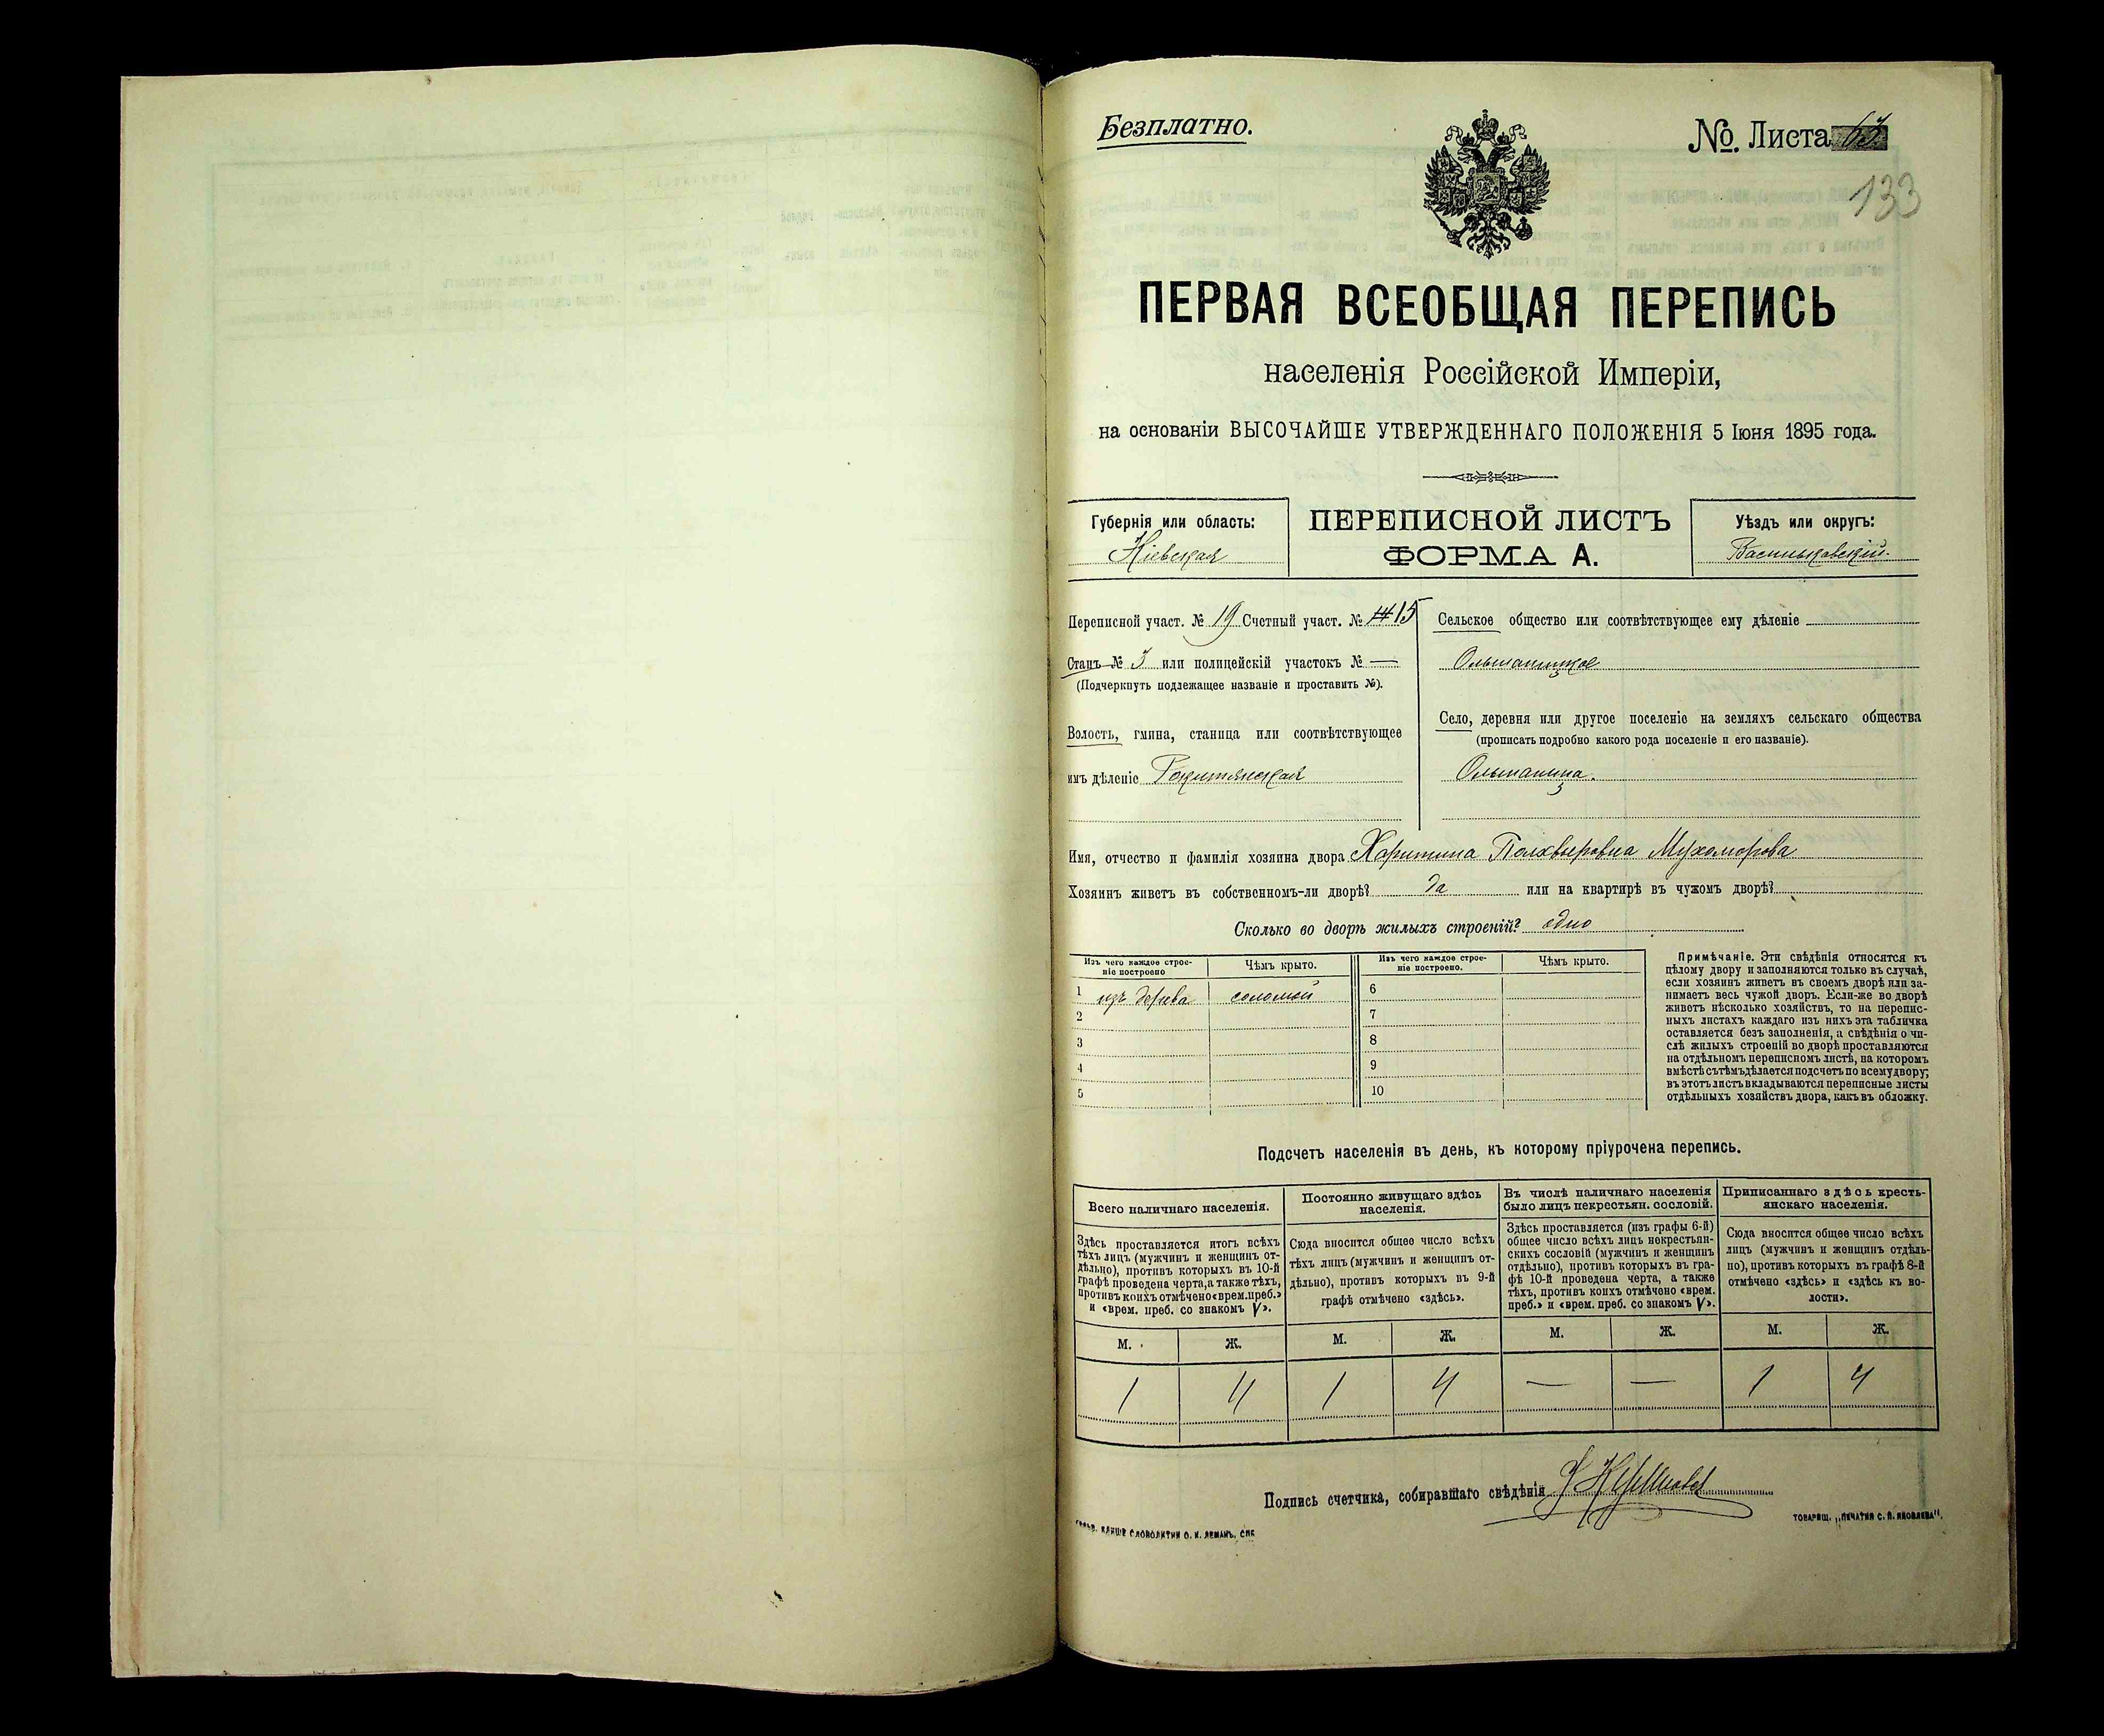 Безплатно.
№. Листа 63
133
ПЕРВАЯ ВСЕОБЩАЯ ПЕРЕПИСЬ
населенія Россійской Имперіи,
на основаніи ВЫСОЧАЙШЕ УТВЕРЖДЕННАГО ПОЛОЖЕНІЯ 5 Іюня 1895 года.
Губернія или область:
Кіевская
ПЕРЕПИСНОЙ ЛИСТЪ
ФОРМА А.
Уѣздъ или округъ:
Васильковскій.
Переписной участ. № 19 Счетный участ. № 14 15
Станъ № 3 или полицейскій участокъ № —
(Подчеркнуть подлежащее названіе и проставить №).
Волость, гмина, станица или соотвѣтствующее
имъ дѣленіе Рокитянская
Сельское общество или соотвѣтствующее ему дѣленіе
Ольшаницкое
Село, деревня или другое поселеніе на земляхъ сельскаго общества
(прописать подробно какого рода поселеніе и его названіе).
Ольшаница.
Имя, отчество и фамилія хозяина двора Харитина Мухоморова
Хозяинъ живетъ въ собственномъ-ли дворѣ? да или на квартирѣ въ чужомъ дворѣ?
Сколько во дворѣ жилыхъ строеній? одно
Изъ чего каждое строе-
ніе построено
Чѣмъ крыто.
Изъ чего каждое строе-
ніе построено.
Чѣмъ крыто.
1 изъ дерева соломой
2
3
4
5
6
7
8
9
10
Примѣчаніе. Эти свѣдѣнія относятся къ
цѣлому двору и заполняются только въ случаѣ,
если хозяинъ живетъ въ своемъ дворѣ или за-
нимаетъ весь чужой дворъ. Если-же во дворѣ
живетъ нѣсколько хозяйствъ, то на перепис-
ныхъ листахъ каждаго изъ нихъ эта табличка
оставляется безъ заполненія, а свѣдѣнія о чи-
слѣ жилыхъ строеній во дворѣ проставляются
на отдѣльномъ переписномъ листѣ, на которомъ
вмѣстѣ съ тѣмъ дѣлается подсчетъ по всему двору;
въ этотъ листъ вкладываются переписные листы
отдѣльныхъ хозяйствъ двора, какъ въ обложку.
Подсчетъ населенія въ день, къ которому пріурочена перепись.
Всего наличнаго населенія.
Здѣсь проставляется итогъ всѣхъ
тѣхъ лицъ (мужчинъ и женщинъ от-
дѣльно), противъ которыхъ въ 10-й
графѣ проведена черта, а также тѣхъ,
противъ коихъ отмѣчено «врем. преб.»
и «врем. преб. со знакомъ V».
Постоянно живущаго здѣсь
населенія.
Сюда вносится общее число всѣхъ
тѣхъ лицъ (мужчинъ и женщинъ от-
дѣльно), противъ которыхъ въ 9-й
графѣ отмѣчено «здѣсь».
Въ числѣ наличнаго населенія
было лицъ некрестьян. сословій.
Здѣсь проставляется (изъ графы 6-й)
общее число всѣхъ лицъ некрестьян-
скихъ сословій (мужчинъ и женщинъ
отдѣльно), противъ которыхъ въ гра-
фѣ 10-й проведена черта, а также
тѣхъ, противъ коихъ отмѣчено «врем.
преб.» и «врем. преб. со знакомъ V».
Приписаннаго здѣсь кресть-
янскаго населенія.
Сюда вносится общее число всѣхъ
лицъ (мужчинъ и женщинъ отдѣль-
но), противъ которыхъ въ графѣ 8-й
отмѣчено «здѣсь» и «здѣсь къ во-
лости».
М. Ж. М. Ж. М. Ж. М. Ж.
1 4 1 4 — — 1 4
Подпись счетчика, собиравшаго свѣдѣнія
КЛИШЕ СЛОВОЛИТНИ О. И. ЛЕМАНЪ, СПБ
ТОВАРИЩ. „ПЕЧАТНЯ С. П. ЯКОВЛЕВА“.